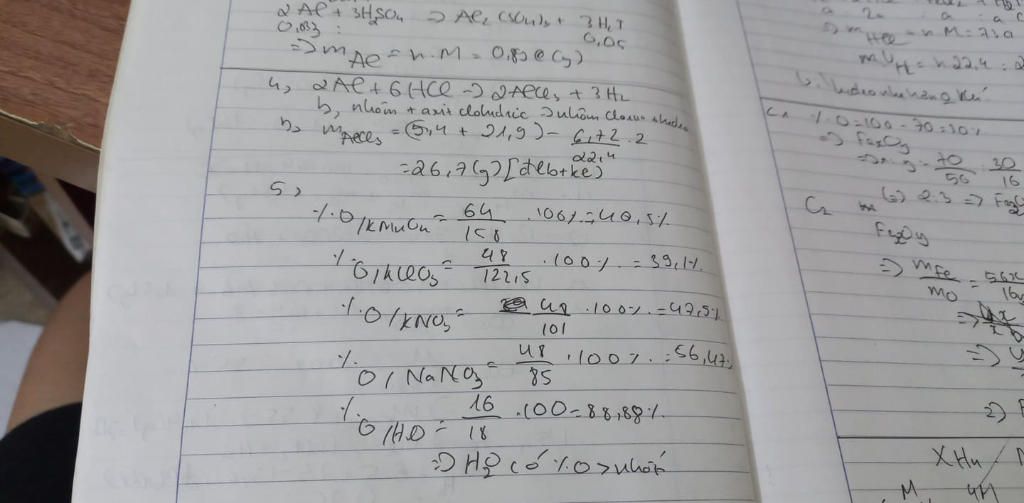 2Al + 3H2SO4 => Al2(SO4)3 + 3H2↑
0,033 : 0,05
=> mAl = n.M = 0,89 (g)
4, 2Al + 6HCl -> 2AlCl3 + 3H2
b, nhôm + axit clohidric -> nhôm clorua +
b, mAlCl3 = (5,4 + 21,9) - 6,72/22,4 . 2
= 26,7 (g) [đlbtkl]
5,
%O/KMnO4 = 64/158 . 100% = 40,5%
%O/KClO3 = 48/122,5 . 100% = 39,1%
%O/KNO3 = 48/101 . 100% = 47,5%
%O/NaNO3 = 48/85 . 100% = 56,47%
%O/H2O = 16/18 . 100 = 88,88%
=> H2O có %O > nhất
a 2a : a : a
=> mHCl = n.M = 73a
mH2 = n.22,4 =
C1 %O = 100 - 70 = 30%
=> FexOy
=> x:y = 70/56 : 30/16
(=) 2:3 =>
C2
FexOy
=> mFe/mO = 56x/16y
=>
=>
=>
XHn
M 4H